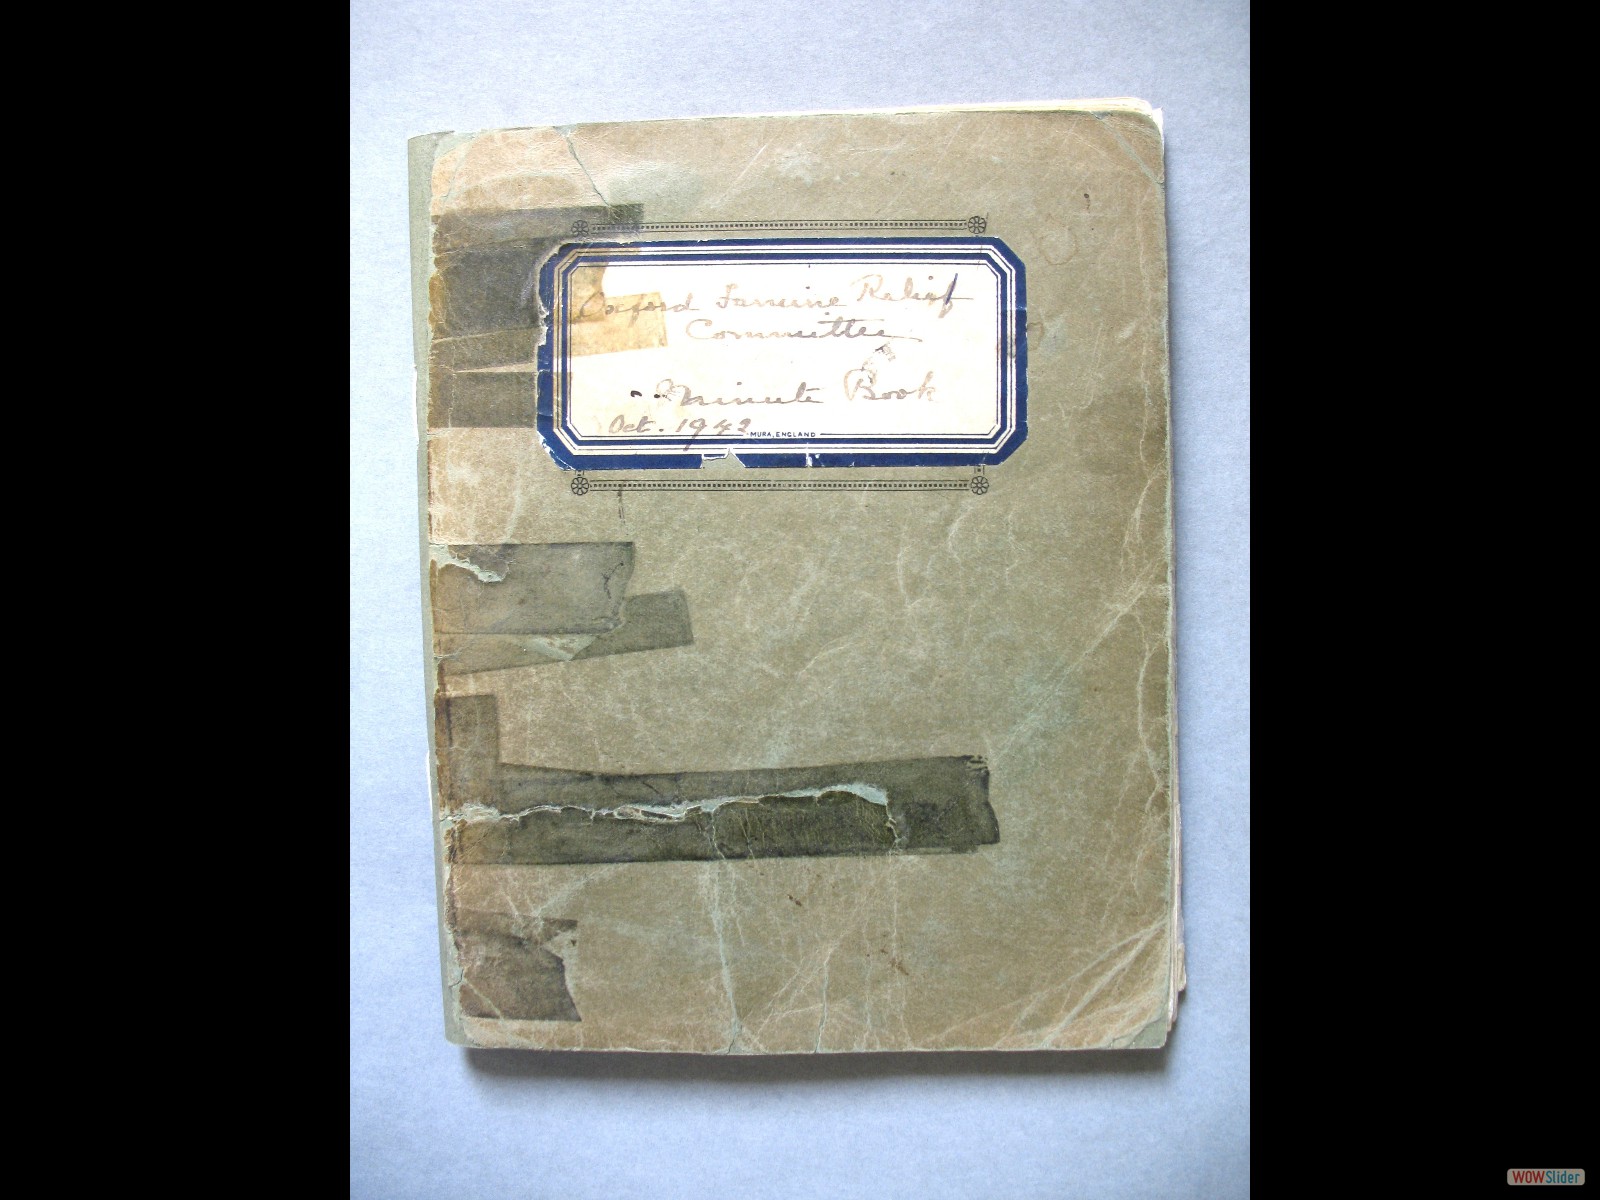 Oxford Famine Relief
Committee
Minute Book
Oct. 1942
MURA, ENGLAND
WOWSlider